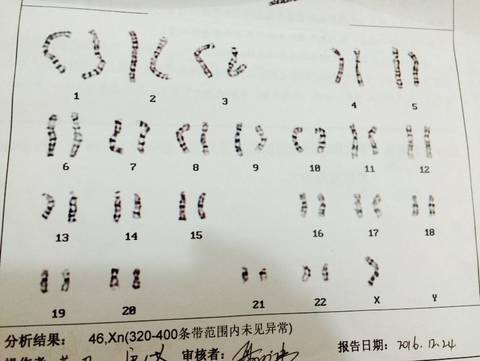 1 2 3 4 5
6 7 8 9 10 11 12
13 14 15 16 17 18
19 20 21 22 X Y
分析结果： 46,Xn(320-400条带范围内未见异常)
审核者： 报告日期：2016.12.24